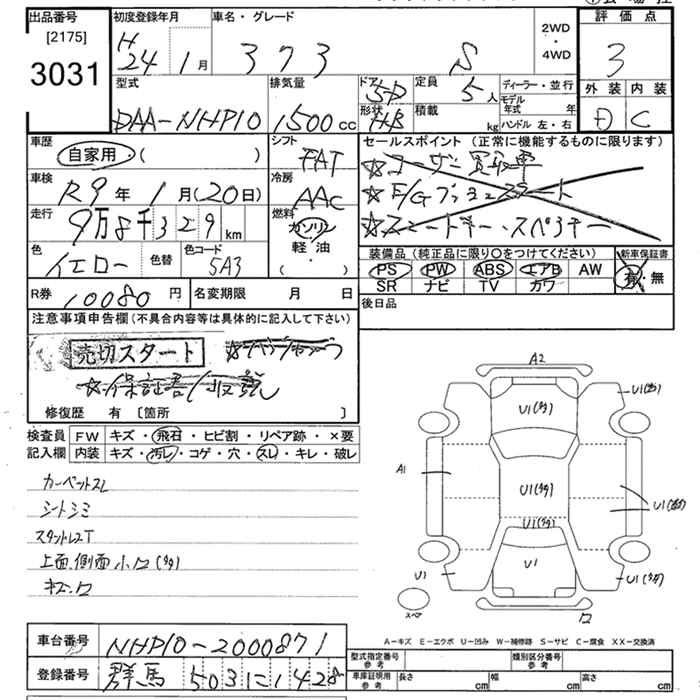 出品番号
[2175]
3031
初度登録年月
H 24 1月
車名・グレード
373 S
2WD
・
4WD
評価点
3
外装 内装
D C
型式
DAA-NHP10
排気量
1500 cc
ドア 5D
形状 HB
定員 5人
積載 kg
ディーラー・並行
モデル年式 年
ハンドル 左・右
車歴
自家用・( )
シフト
FAT
車検
R9年 1月(20日)
冷房
AAC
走行
9万8千329km
燃料
ガソリン
軽・油
・( )
色
イエロー
色替
色コード
5A3
セールスポイント (正常に機能するものに限ります)
☆ユーザー買取車
☆E/Gプッシュスタート
☆スマートキー・スペアキー
装備品 (純正品に限り○をつけてください)
PS PW ABS エアB AW
SR ナビ TV カワ
新車保証書
有・無
R券 10080円
名変期限 月 日
後日品
注意事項申告欄 (不具合内容等は具体的に記入して下さい)
売切スタート
修復歴 有 [箇所 ]
検査員記入欄
FW キズ・飛石・ヒビ割・リペア跡・×要
内装 キズ・汚レ・コゲ・穴・スレ・キレ・破レ
カーペットスレ
シートシミ
上面、側面小ワ(多)
キズ、ワ
A2
U1(多)
U1(多)
A1
U1(多)
U1(多)
U1(多)
U1
U1
U1(多)
スペア
ワ
A-キズ E-エクボ U-凹み W-補修跡 S-サビ C-腐食 XX-交換済
車台番号
NHP10-2000871
登録番号
群馬 503 に 1428
型式指定番号 参考
類別区分番号 参考
車庫証明用 参考
長さ cm
幅 cm
高さ cm